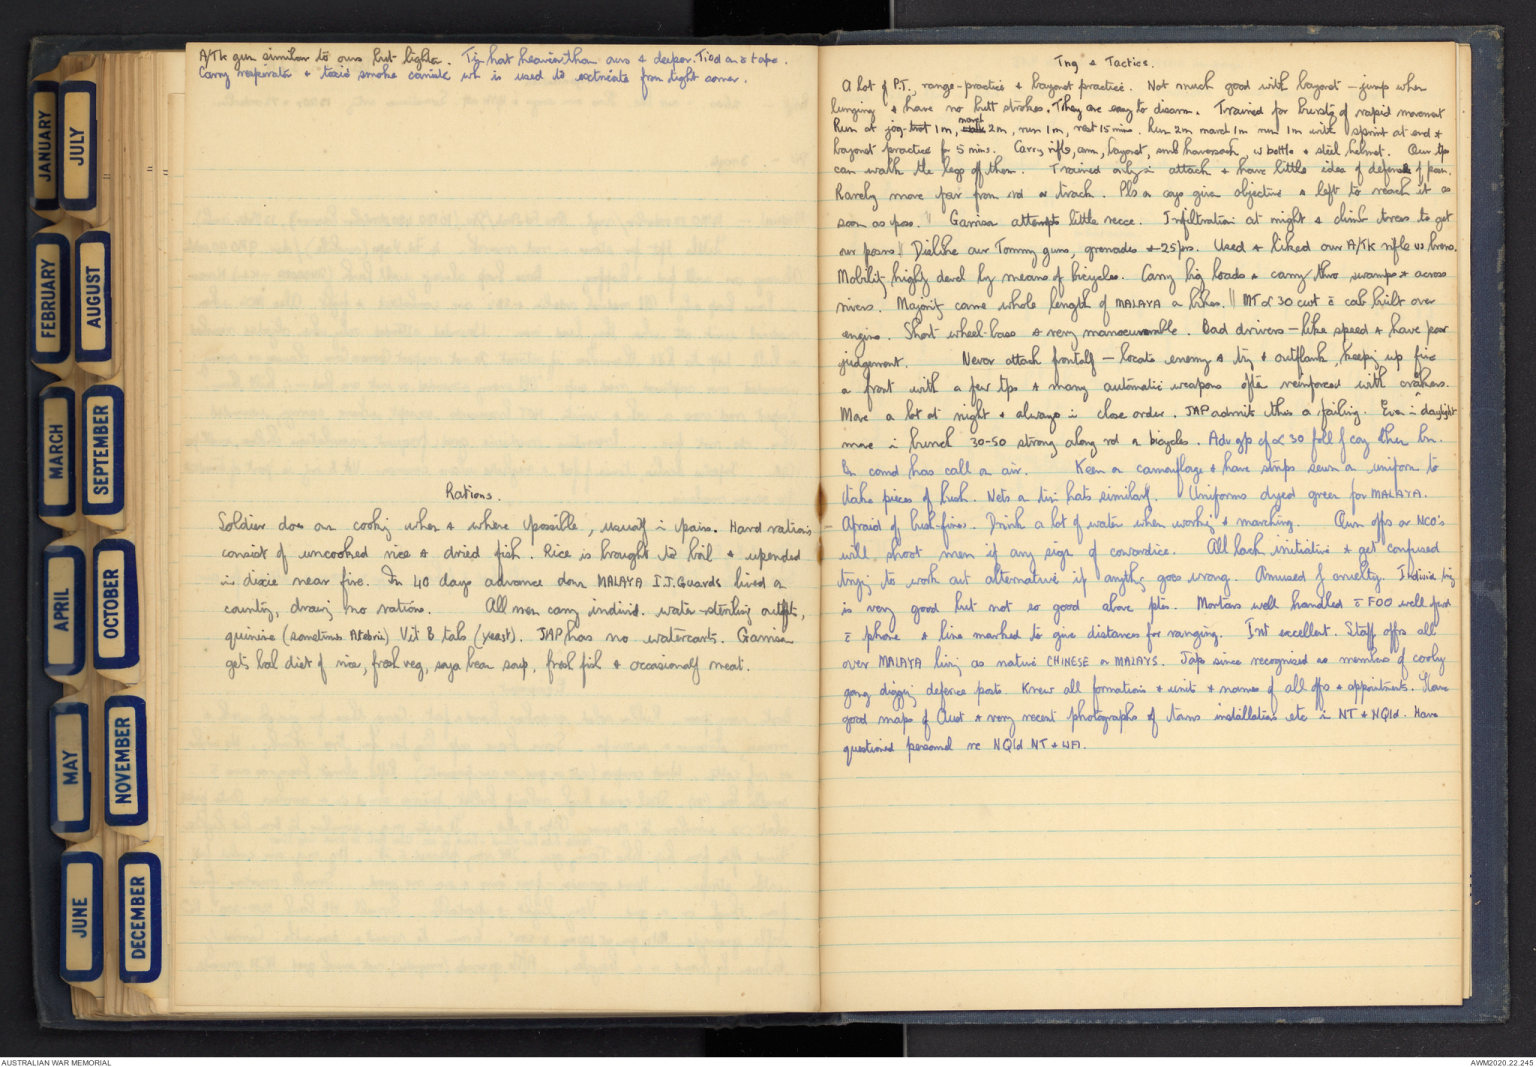 A/Tk gun similar to ours but lighter. Tin hat heavier than ours & deeper. Tied on c̄ tape.
Carry respirator & toxic smoke canister wh is used to extricate from tight corner.
Rations.
Soldier does own cooking when & where possible, usually in pairs. Hard rations
consist of uncooked rice & dried fish. Rice is brought to boil & upended
in dixie near fire. In 40 days advance down MALAYA I.J. Guards lived on
country, drawing no rations. All men carry individ. water-sterilising outfits,
quinine (sometimes Atebrin) Vit B tabs (yeast). JAP has no watercarts. Garrison
gets boil diet of rice, fresh veg, soya bean soup, fresh fish & occasionally meat.
Tng & Tactics.
A lot of P.T., range-practice & bayonet practice. Not much good with bayonet – jump when
lunging & have no butt strokes. They are easy to disarm. Trained for bursts of rapid movement
Run at jog-trot 1m, march 2m, run 1m, rest 15 mins. Run 2m march 1m run 1m with sprint at end &
bayonet practice for 5 mins. Carry rifle, amn, bayonet, small haversack, w bottle & steel helmet. Our tps
can walk the legs off them. Trained only in attack & have little idea of defence of posn.
Rarely move far from rd or track. Pls or coys given objective & left to reach it as
soon as poss. // Garrison attempts little recce. Infiltration at night & climb trees to get
our posns // Dislike our Tommy guns, grenades & 25 prs. Used & liked our A/TK rifle vs brens.
Mobility highly devel by means of bicycles. Carry big loads & carry thro swamps & across
rivers. Majority came whole length of MALAYA on bikes. // MT 30 cwt c̄ cab built over
engine. Short wheel-base & very manoeuvrable. Bad drivers – like speed & have poor
judgement. Never attack frontally – locate enemy & try & outflank, keeping up fire
on front with a few tps & many automatic weapons often reinforced with crackers.
Move a lot at night & always in close order. JAP admits this a failing. Even in daylight
move in bunch 30-50 strong along rd on bicycles. Adv gp of 30 foll by coy then bn.
Bn comd has call on air. Keen on camouflage & have strips sewn on uniform to
take pieces of bush. Nets on tin hats similarly. Uniforms dyed green for MALAYA.
Afraid of bush-fires. Drink a lot of water when working & marching. Own offs or NCO's
will shoot men if any sign of cowardice. All lack initiative & get confused
trying to work out alternative if anything goes wrong. Amused by cruelty. Individ tng
is very good but not so good above ptn. Mortars well handled c̄ FOO well fwd
c̄ phone & line marked to give distances for ranging. Int excellent. Staff offrs all
over MALAYA living as native CHINESE or MALAYS. Jap since recognised as member of cooly
gang digging defence posts. Knew all formations & units & names of all offrs & appointments. Have
good maps of Aust & very recent photographs of towns installations etc in NT & NQld. Have
questioned personnel re NQld NT & WA.
JANUARY
JULY
FEBRUARY
AUGUST
MARCH
SEPTEMBER
APRIL
OCTOBER
MAY
NOVEMBER
JUNE
DECEMBER
AUSTRALIAN WAR MEMORIAL
AWM2020.22.245